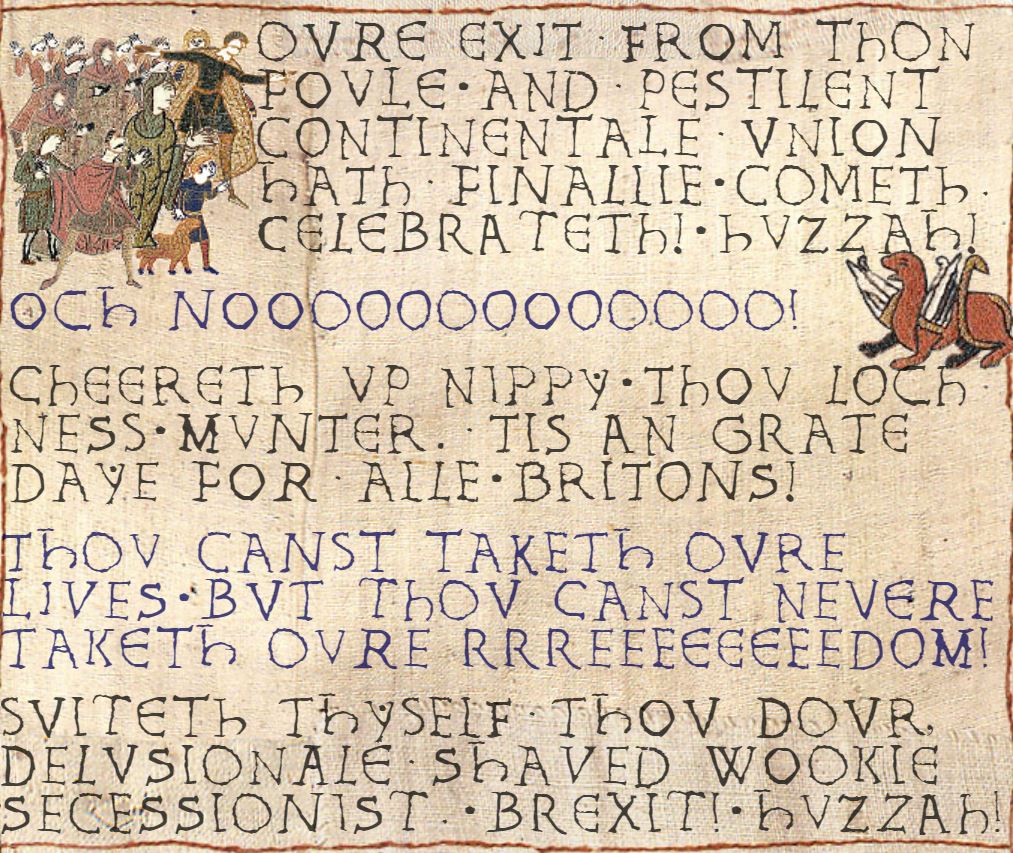 OVRE EXIT · FROM ThON
FOVLE · AND · PESTILENT
CONTINENTALE · VNION
hATh · FINALLIE · COMETh ·
CELEBRATETh! · hVZZAh!
OCh NOOOOOOOOOOOOOO!
ChEERETh VP NIPPY · ThOV LOCh
NESS · MVNTER. · TIS AN GRATE
DAYE FOR · ALLE · BRITONS!
ThOV CANST TAKETh OVRE
LIVES · BVT ThOV CANST NEVERE
TAKETh OVRE RRREEEEEEEEDOM!
SVITETh ThYSELF · ThOV DOVR,
DELVSIONALE · ShAVED WOOKIE
SECESSIONIST · BREXIT! · hVZZAh!